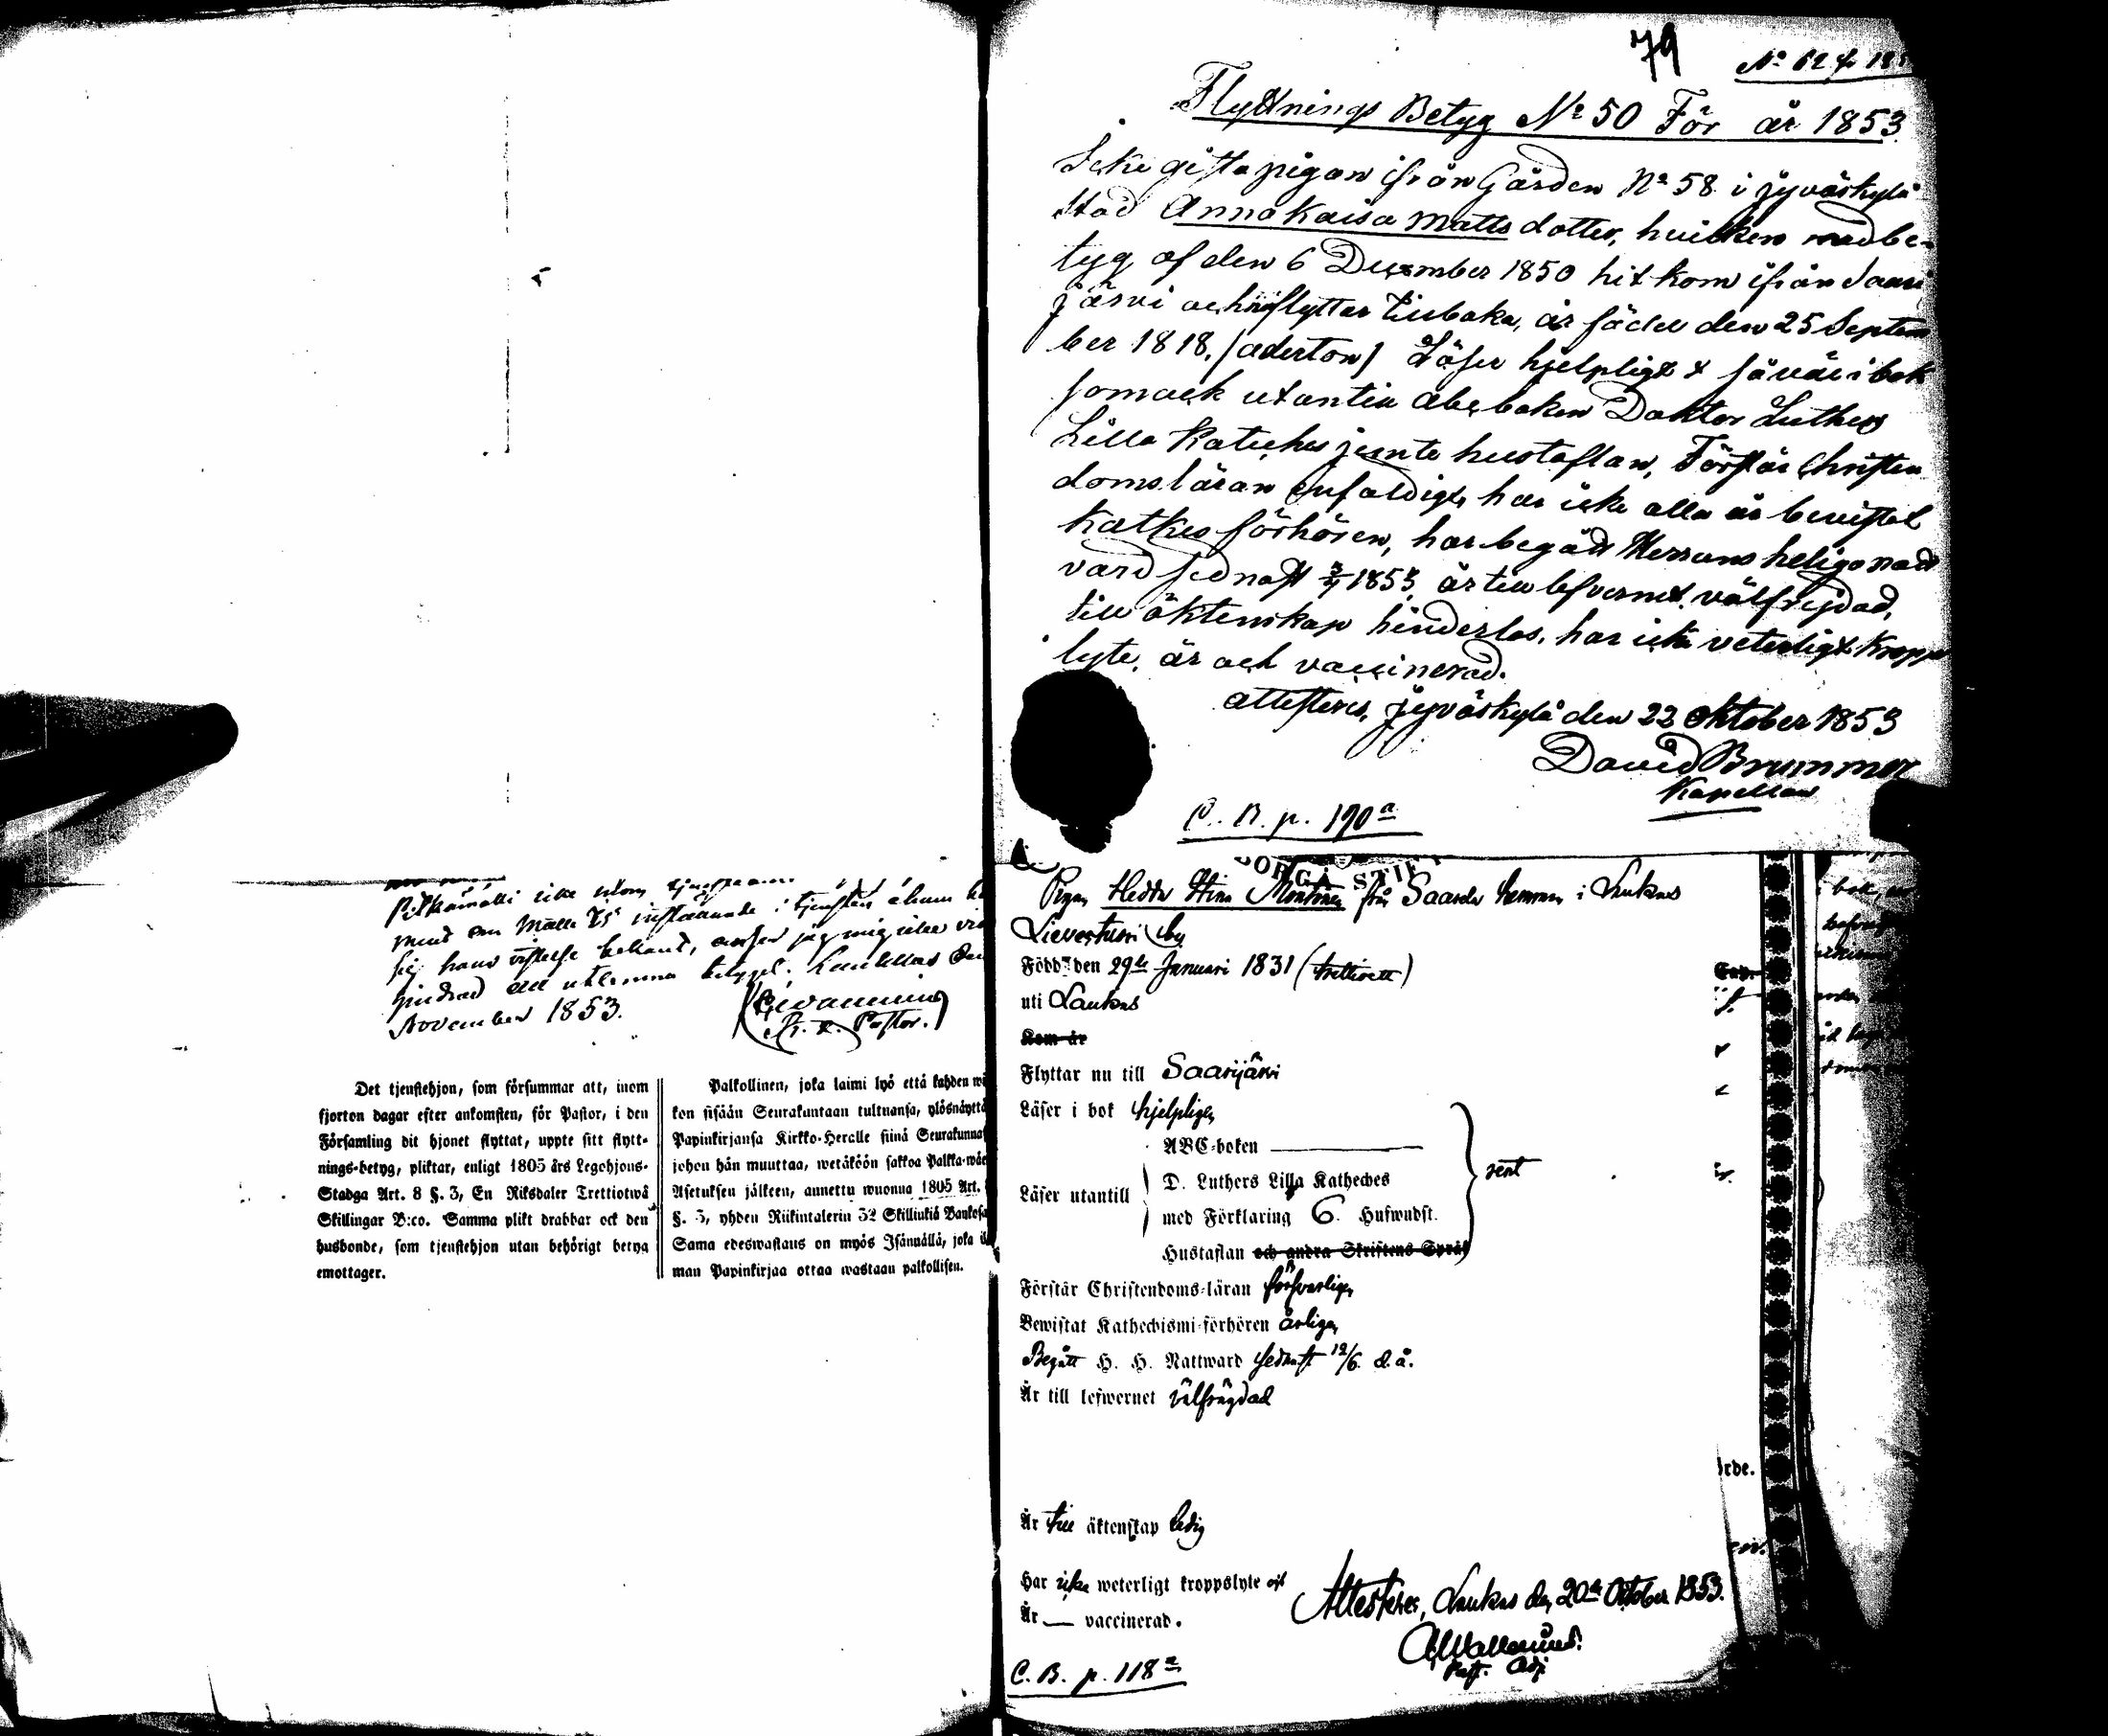 79
No 62 f. 185
Flyttnings Betyg No 50 För år 1853
Icke gifta pigan ifrån Gården No 58 i jyväskylä
Stad Anna Kaisa Matts dotter, hvilken med be-
tyg af den 6 December 1850 hit kom ifrån Saari
järvi och nu flyttar tillbaka, är född den 25 Septem
ber 1818. (aderton) Läser hjelpligt så väl i bok
som ock utantill abc boken Doktor Luthers
Lilla Kateches jemte hustaflan, Förstår Christen
domsläran enfaldigt, har icke alla år bevistat
Katkes förhören, har begått Herrans heliga natt
vard sednast 1853, är till lefvernet välfrejdad,
till äktenskap hinderlös, har icke veterligt kropps
lyte, är och vaccinerad.
attesteras, jyväskylä den 22 oktober 1853
David Brummer
Kapellan
C. B. p. 190 a
sig hans vistelse bekant, anser jag mig icke
hindrad att utlemna betyget. Laukkas den
November 1853.
Pastor.
Det tjenstehjon, som försummar att, inom
fjorton dagar efter ankomsten, för Pastor, i den
Församling dit hjonet flyttat, uppte sitt flytt-
nings-betyg, pliktar, enligt 1805 års Legohjons-
Stadga Art. 8 §. 3, En Riksdaler Trettiotwå
Skillingar B:co. Samma plikt drabbar ock den
husbonde, som tjenstehjon utan behörigt betyg
emottager.
Palkollinen, joka laimi lyö että kahden wii
kon sisään Seurakuntaan tultuansa, ylösnäyttä
Papinkirjansa Kirkko-Herralle siinä Seurakunnas
johon hän muuttaa, wetäköön sakkoa Palkka-wäe
Asetuksen jälkeen, annettu wuonna 1805 Art.
§. 3, yhden Riikintalerin 32 Skillinkiä Bankosa
Sama edeswastaus on myös Isännällä, joka il
man Papinkirjaa ottaa wastaan palkollisen.
BORGÅ STIFT
Pigan Hedda Stina Montonen från Saarela hemman i Laukas
Lievestuori by
Född den 29de Januari 1831 (trettioett)
uti Laukas
Kom år
Flyttar nu till Saarijärvi
Läser i bok hjelpligen
ABC-boken
Läser utantill
D. Luthers Lilla Katheches
med Förklaring 6. Hufwudst.
Hustaflan och andra Skriftens Språk
rent
Förstår Christendoms-läran försvarligen
Bewistat Kathechismi-förhören årligen
Begått H. H. Nattward sednast 12/6 d.å.
Är till lefwernet välfrägdad
Är till äktenskap ledig
Har icke weterligt kroppslyte och
Är — vaccinerad.
Attesteras, Laukas den 20de October 1853.
Past. Adj.
C. B. p. 118 a